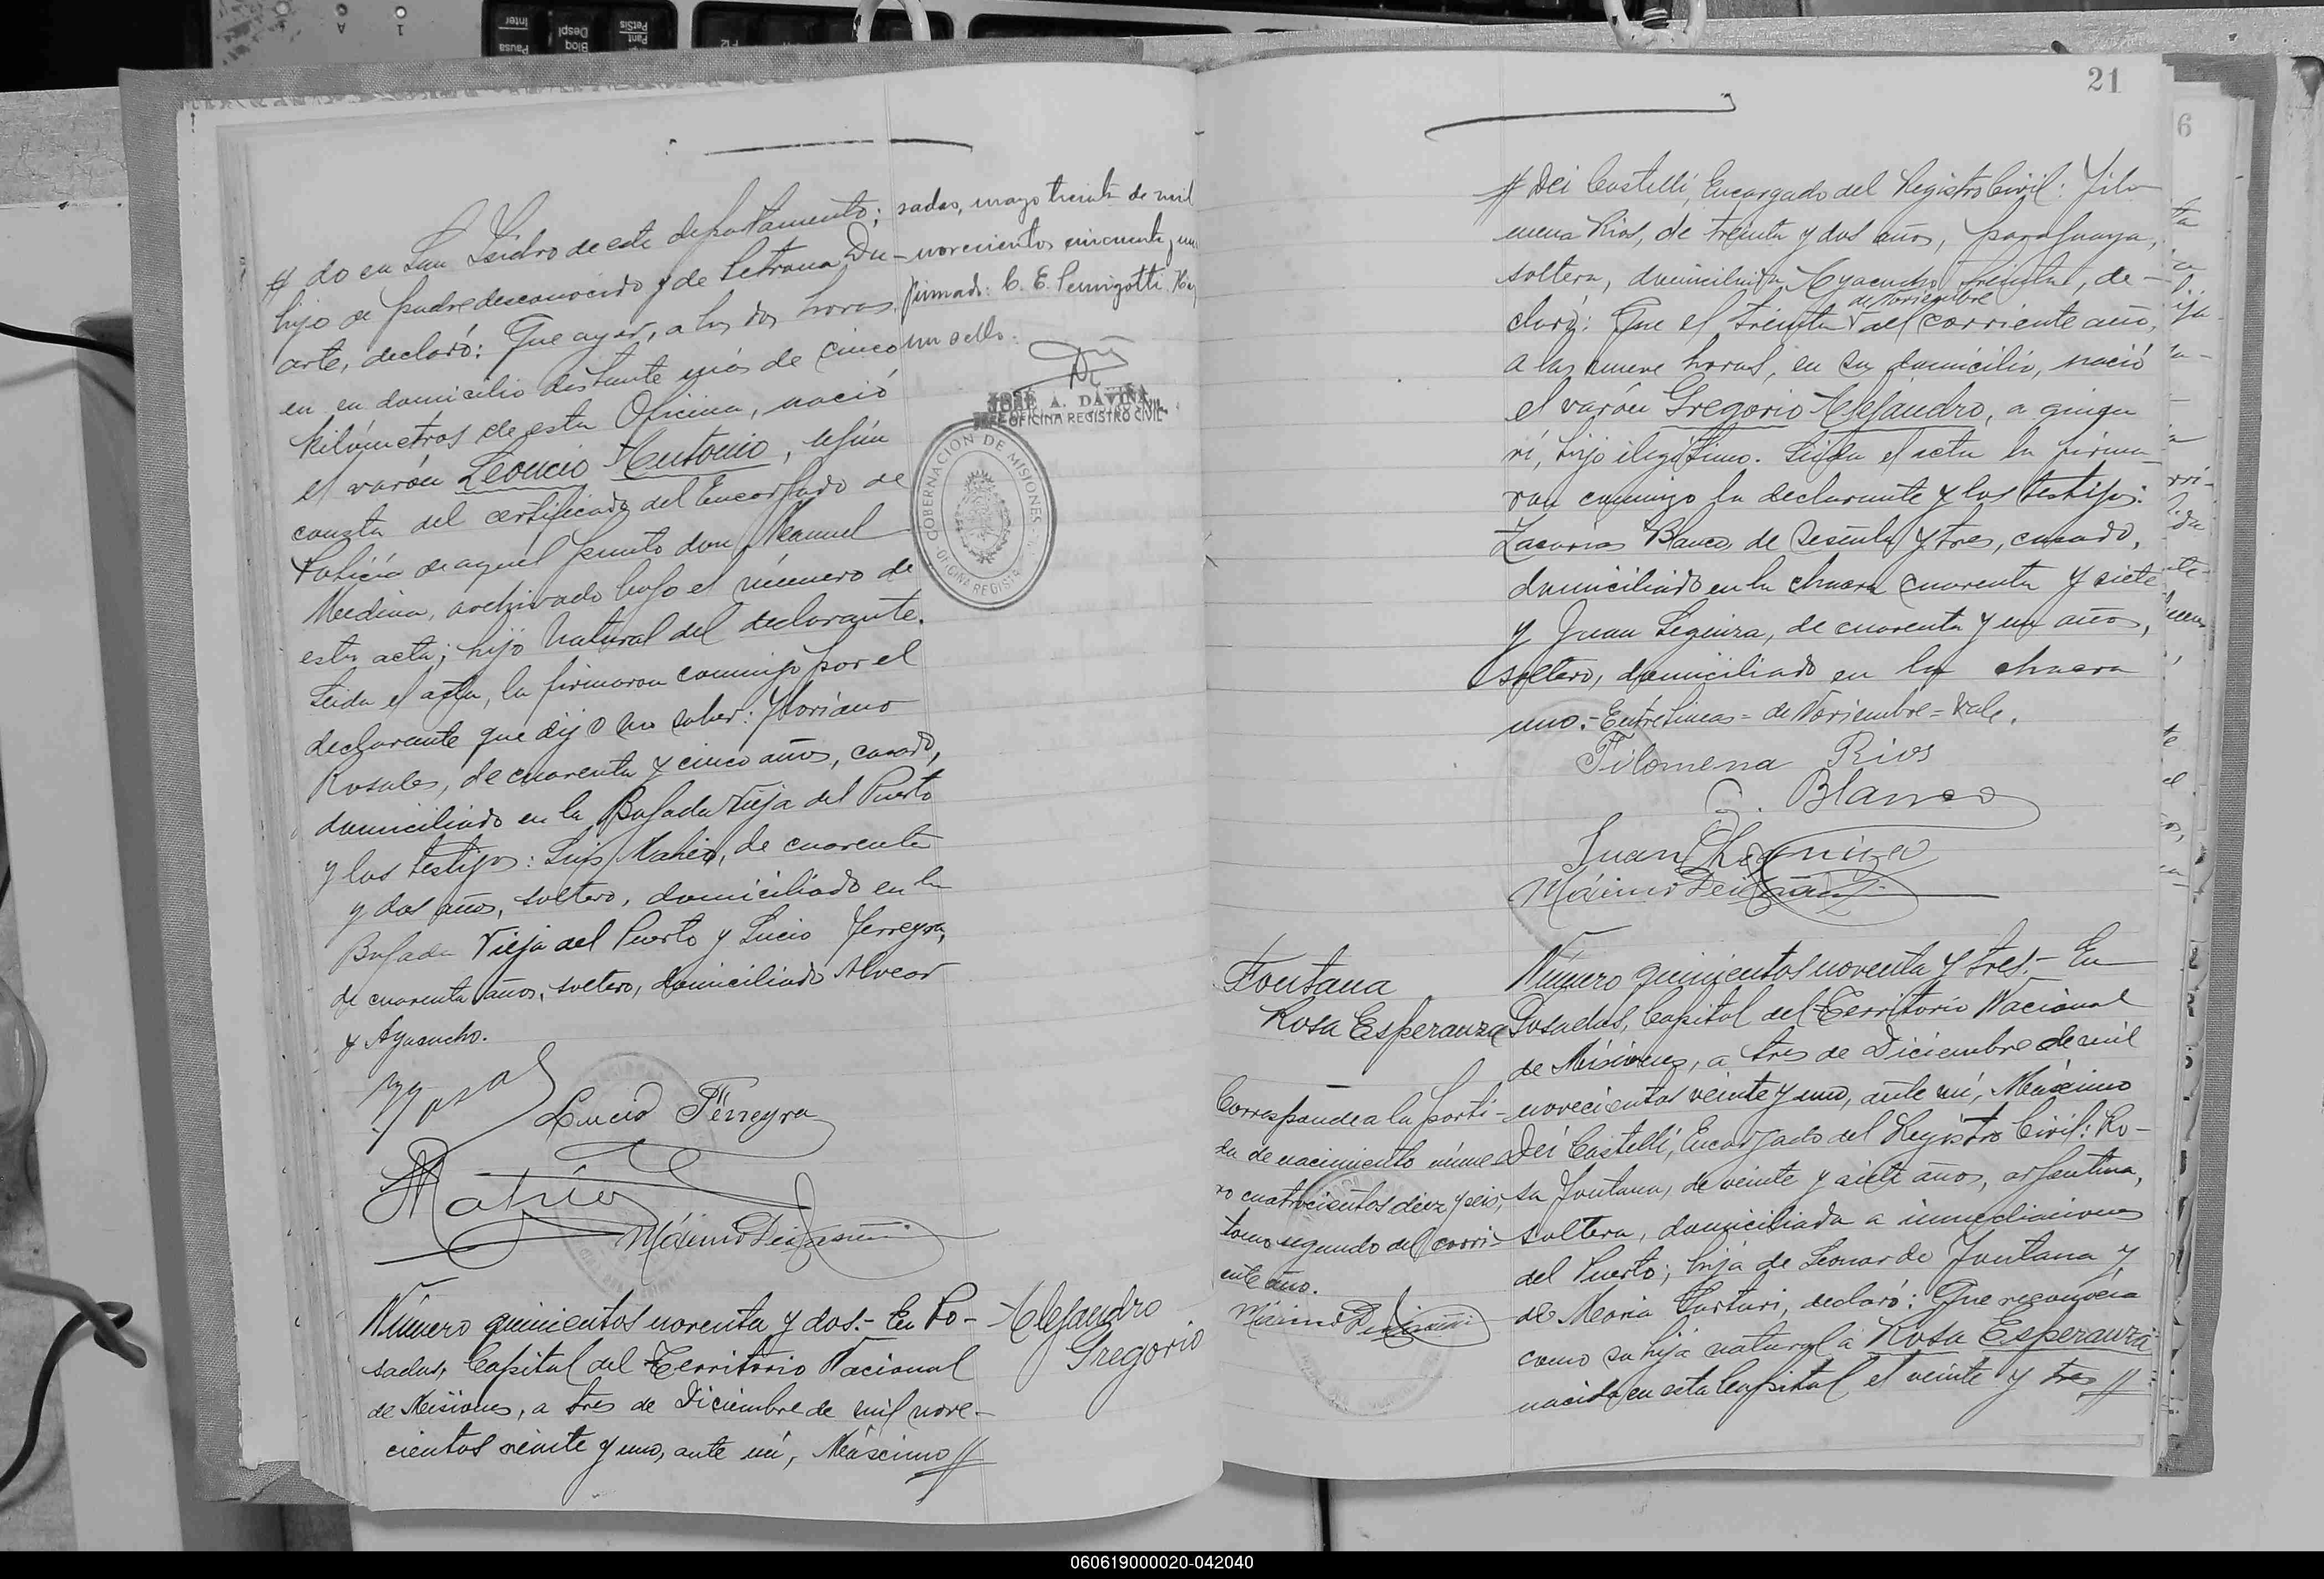 do en San Isidro de este departamento;
hijo de padre desconocido y de Petrona Du-
arte, declaró: Que ayer, a las dos horas
en su domicilio distante más de cinco
kilómetros de esta Oficina, nació
el varón Leoncio Antonio, según
consta del certificado del Encargado de
Policía de aquel punto don Manuel
Medina, archivado bajo el número de
esta acta; hijo natural del declarante.
Leida el acta, la firmaron conmigo por el
declarante que dijo no saber: Floriano
Rosales, de cuarenta y cinco años, casado,
domiciliado en la Bajada Vieja del Puerto
y los testigos: Luis Mahier, de cuarenta
y dos años, soltero, domiciliado en la
Bajada Vieja del Puerto y Lucio Ferreyra,
de cuarenta años, soltero, domiciliado Alvear
y Ayacucho.
Lucio Ferreyra
Mahier
Máximo Dei Castelli
sadas, mayo treinta de mil
novecientos cincuenta y un
firmado: C. E.
un sello.
JOSÉ A. DAVIÑA
JEFE OFICINA REGISTRO CIVIL
GOBERNACION DE MISIONES
OFICINA REGISTRO
Número quinientos noventa y dos.- En Po-
sadas, Capital del Territorio Nacional
de Misiones, a tres de Diciembre de mil nove-
cientos veinte y uno, ante mí, Máximo
Alejandro
Gregorio
21
Dei Castelli, Encargado del Registro Civil: Filo-
mena Rios, de treinta y dos años, paraguaya,
soltera, domiciliada Ayacucho treinta, de-
de Noviembre
claró: Que el treinta del corriente año,
a las nueve horas, en su domicilio, nació
el varón Gregorio Alejandro, a quien
ví, hijo ilegítimo. Leida el acta la firma-
ron conmigo la declarante y los testigos:
Zacarías Blanco, de sesenta y tres, casado,
domiciliado en la chacra cuarenta y siete
y Juan Leguiza, de cuarenta y un años,
soltero, domiciliado en la chacra
uno.- Entrelineas = de Noviembre = Vale.
Filomena Rios
Blanco
Juan Leguiza
Máximo Dei Castelli
Fontana
Rosa Esperanza
Corresponde a la parti-
da de nacimiento núme-
ro cuatrocientos diez y seis,
tomo segundo del corri-
ente año.
Máximo Dei Castelli
Número quinientos noventa y tres.- En
Posadas, Capital del Territorio Nacional
de Misiones, a tres de Diciembre de mil
novecientos veinte y uno, ante mí, Máximo
Dei Castelli, Encargado del Registro Civil: Ro-
sa Fontana, de veinte y siete años, argentina,
soltera, domiciliada a inmediaciones
del Puerto; hija de Leonardo Fontana y
de Maria, declaró: Que reconocía
como su hija natural a Rosa Esperanza
nacida en esta Capital el veinte y tres
6
060619000020-042040